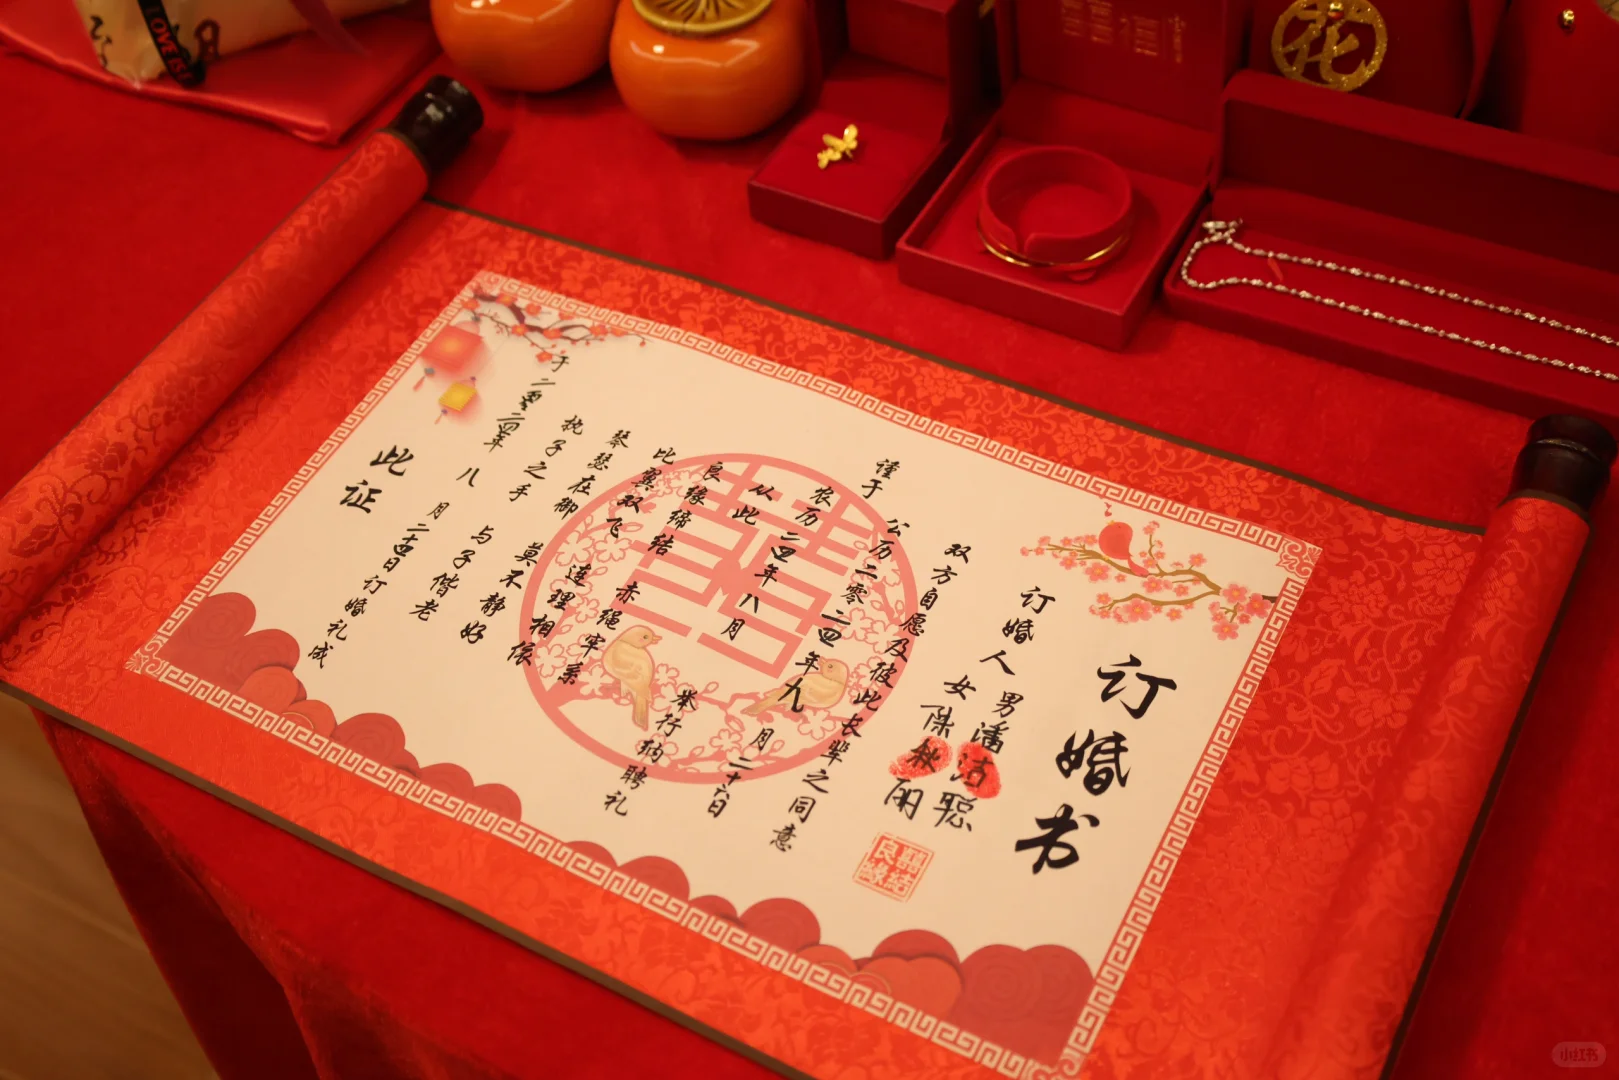 订婚书
订婚人 男潘洁聪
女陈 丽
双方自愿及彼此长辈之同意
谨于 公历二零二四年九月二十六日
农历二四年八月 举行纳聘礼
从此
良缘缔结 赤绳牢系
比翼双飞 连理相依
琴瑟在御 莫不静好
执子之手 与子偕老
于二零二四年 八 月二十四日订婚礼成
此证
囍结
良缘
花
LOVE IS
小红书